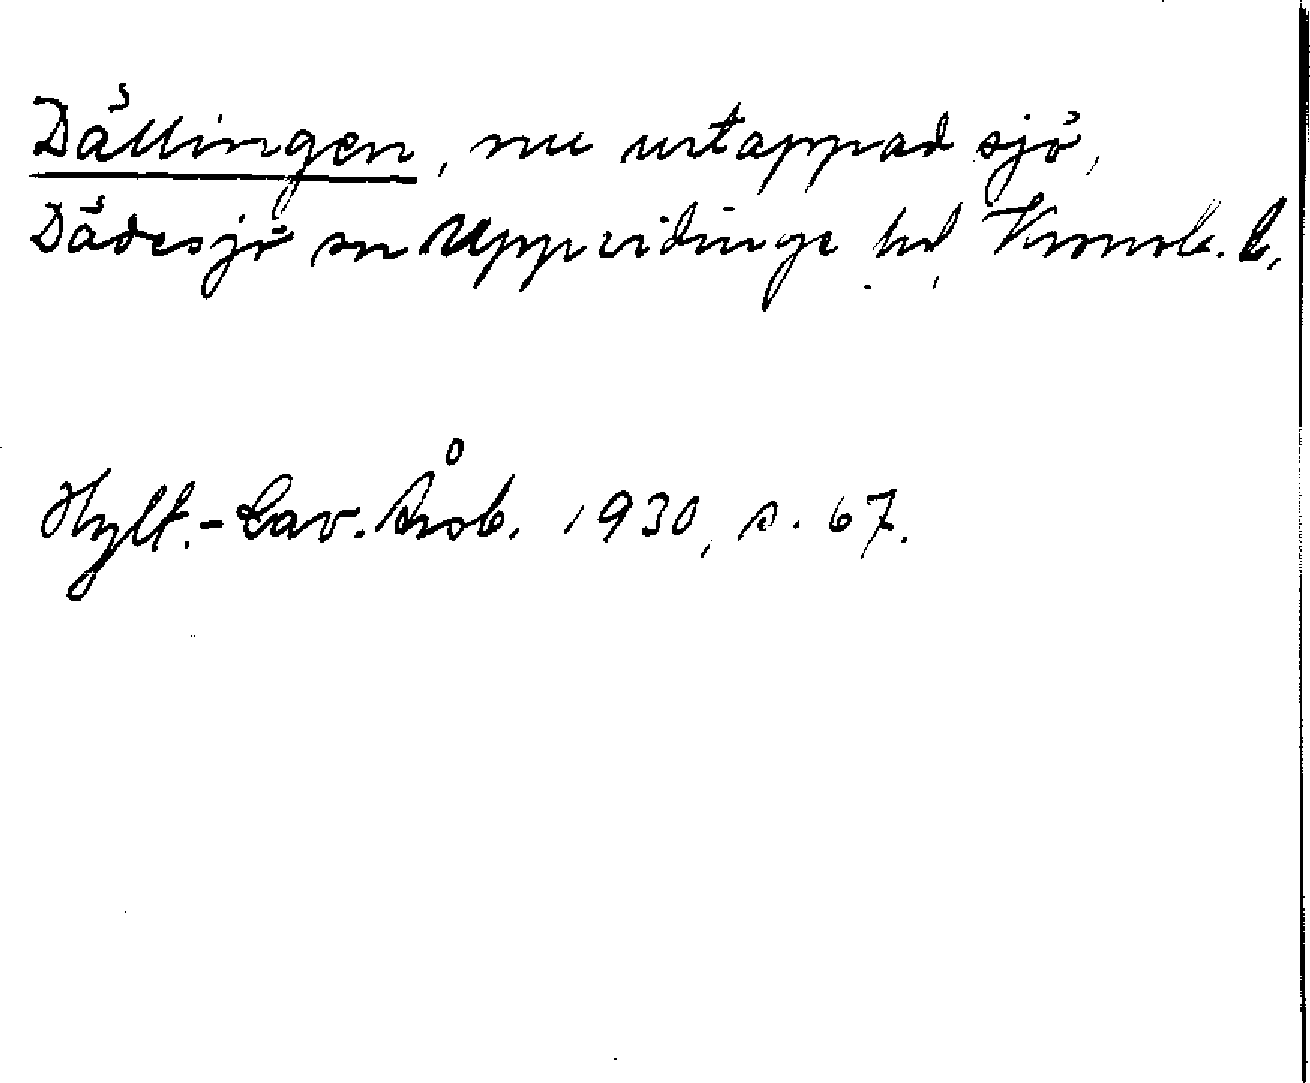 Dällingen, nu urtappad sjö,
Dädesjö sn Uppvidinge hd, Kronob. l.
Hylt.-Cav. Årsb. 1930, s. 67.